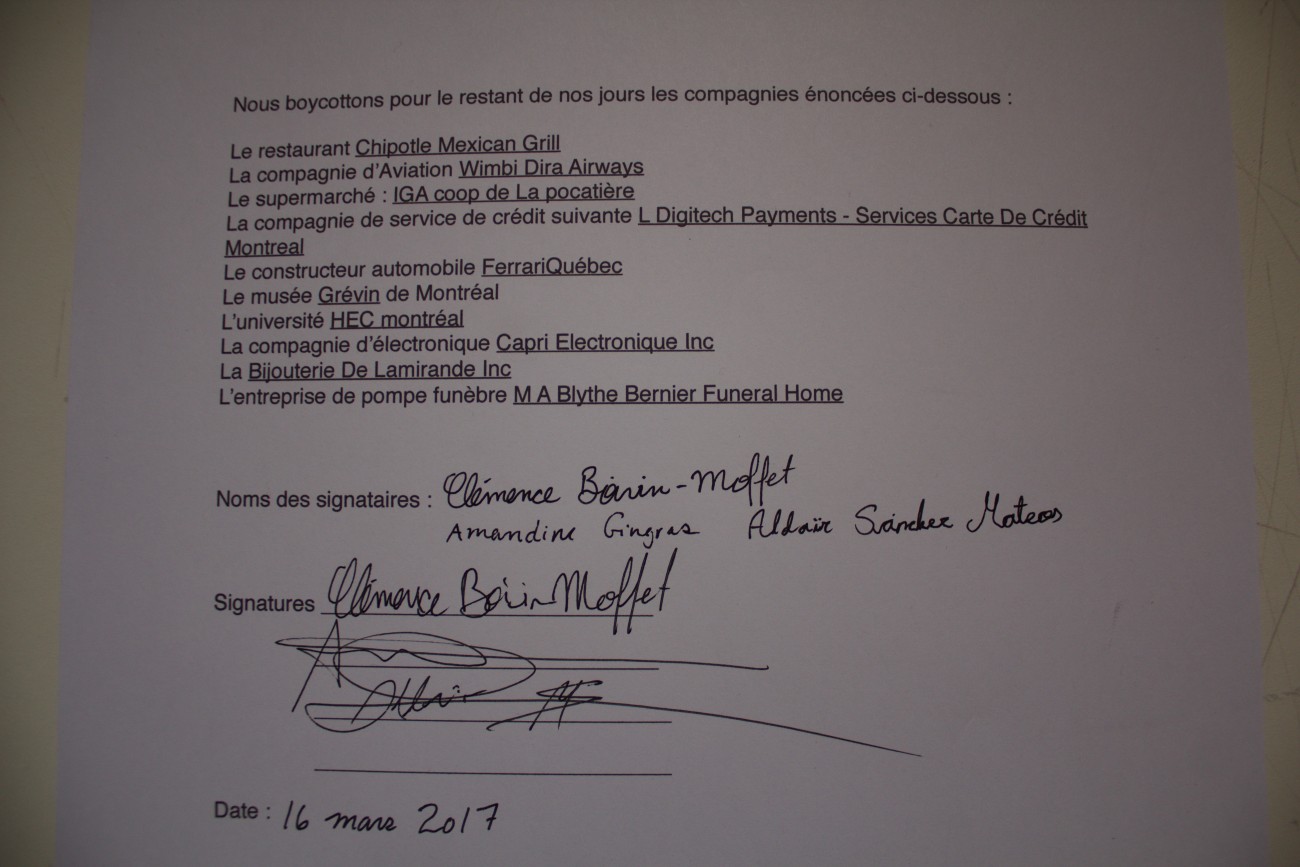 Nous boycottons pour le restant de nos jours les compagnies énoncées ci-dessous :
Le restaurant Chipotle Mexican Grill
La compagnie d'Aviation Wimbi Dira Airways
Le supermarché : IGA coop de La pocatière
La compagnie de service de crédit suivante L Digitech Payments - Services Carte De Crédit
Montreal
Le constructeur automobile FerrariQuébec
Le musée Grévin de Montréal
L'université HEC montréal
La compagnie d'électronique Capri Electronique Inc
La Bijouterie De Lamirande Inc
L'entreprise de pompe funèbre M A Blythe Bernier Funeral Home
Noms des signataires : Clémence Boivin-Moffet
Amandine Gingras Aldaïr Sánchez Mateos
Signatures Clémence Boivin Moffet
Date : 16 mars 2017